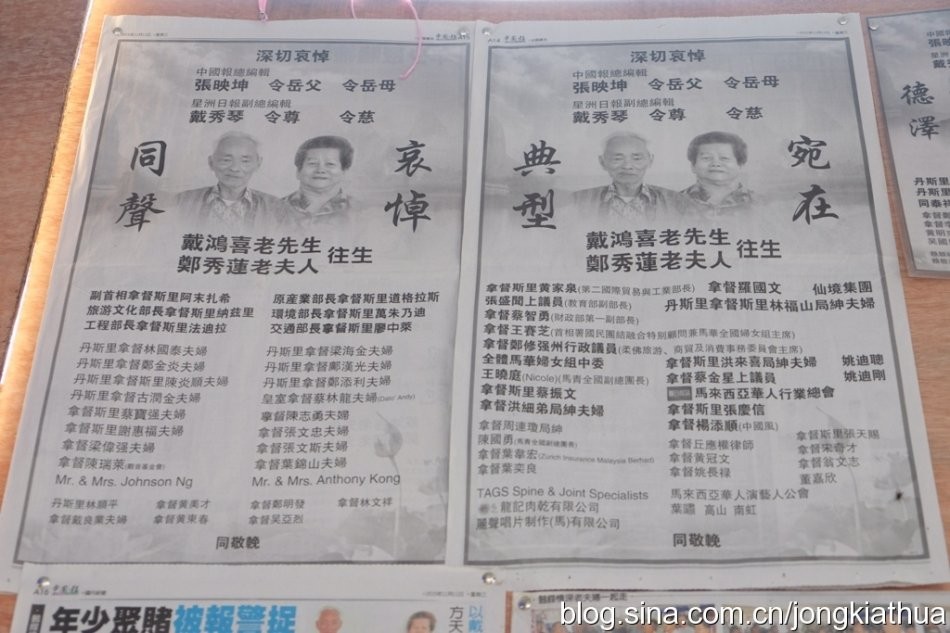 中國報
深切哀悼
中國報總編輯
張映坤 令岳父 令岳母
星洲日報副總編輯
戴秀琴 令尊 令慈
同聲
哀悼
戴鴻喜老先生
鄭秀蓮老夫人
往生
副首相拿督斯里阿末扎希
旅游文化部長拿督斯里納茲里
工程部長拿督斯里法迪拉
原產業部長拿督斯里道格拉斯
環境部長拿督斯里萬朱乃迪
交通部長拿督斯里廖中萊
丹斯里拿督林國泰夫婦
丹斯里拿督鄭金炎夫婦
丹斯里拿督斯里陳炎順夫婦
丹斯里拿督古潤金夫婦
拿督斯里蔡寶強夫婦
拿督斯里謝惠福夫婦
拿督梁偉强夫婦
拿督陳瑞萊(觀音基金會)
Mr. & Mrs. Johnson Ng
丹斯里拿督梁海金夫婦
丹斯里拿督鄺漢光夫婦
丹斯里拿督鄭添利夫婦
皇室拿督蔡林龍夫婦(Dato' Andy)
拿督陳志勇夫婦
拿督張文忠夫婦
拿督張文斯夫婦
拿督葉錦山夫婦
Mr. & Mrs. Anthony Kong
丹斯里林順平 拿督黃美才 拿督鄭明發 拿督林文祥
拿督戴良業夫婦 拿督黃東春 拿督吴亞烈
同敬輓
中國報
深切哀悼
中國報總編輯
張映坤 令岳父 令岳母
星洲日報副總編輯
戴秀琴 令尊 令慈
典型
宛在
戴鴻喜老先生
鄭秀蓮老夫人
往生
拿督斯里黃家泉(第二國際貿易與工業部長) 拿督羅國文 仙境集團
張盛聞上議員(教育部副部長) 丹斯里拿督斯里林福山局紳夫婦
拿督蔡智勇(財政部第一副部長)
拿督王賽芝(首相署國民團結融合特別顧問兼馬華全國婦女組主席)
拿督鄭修强州行政議員(柔佛旅游、商貿及消費事務委員會主席)
全體馬華婦女組中委
王曉庭(Nicole)(馬青全國副總團長)
拿督斯里蔡振文
拿督洪細弟局紳夫婦
拿督斯里洪來喜局紳夫婦 姚迪聰
拿督蔡金星上議員 姚迪剛
馬來西亞華人行業總會
拿督斯里張慶信
拿督楊添順(中國風)
拿督周連瓊局紳
陳國勇(馬青全國副總團長)
拿督葉韋宏(Zurich Insurance Malaysia Berhad)
拿督葉奕良
拿督丘應權律師
拿督黃冠文
拿督姚長禄
拿督斯里張天賜
拿督宋奇才
拿督翁文志
董嘉欣
TAGS Spine & Joint Specialists
龍記肉乾有限公司
麗聲唱片制作(馬)有限公司
馬來西亞華人演藝人公會
葉嘯 高山 南虹
同敬輓
德澤
丹斯里
丹斯里
同泰
拿督
張映
戴秀
中國報
年少聚賭被報警捉
以戴
方天
blog.sina.com.cn/jongkiathua